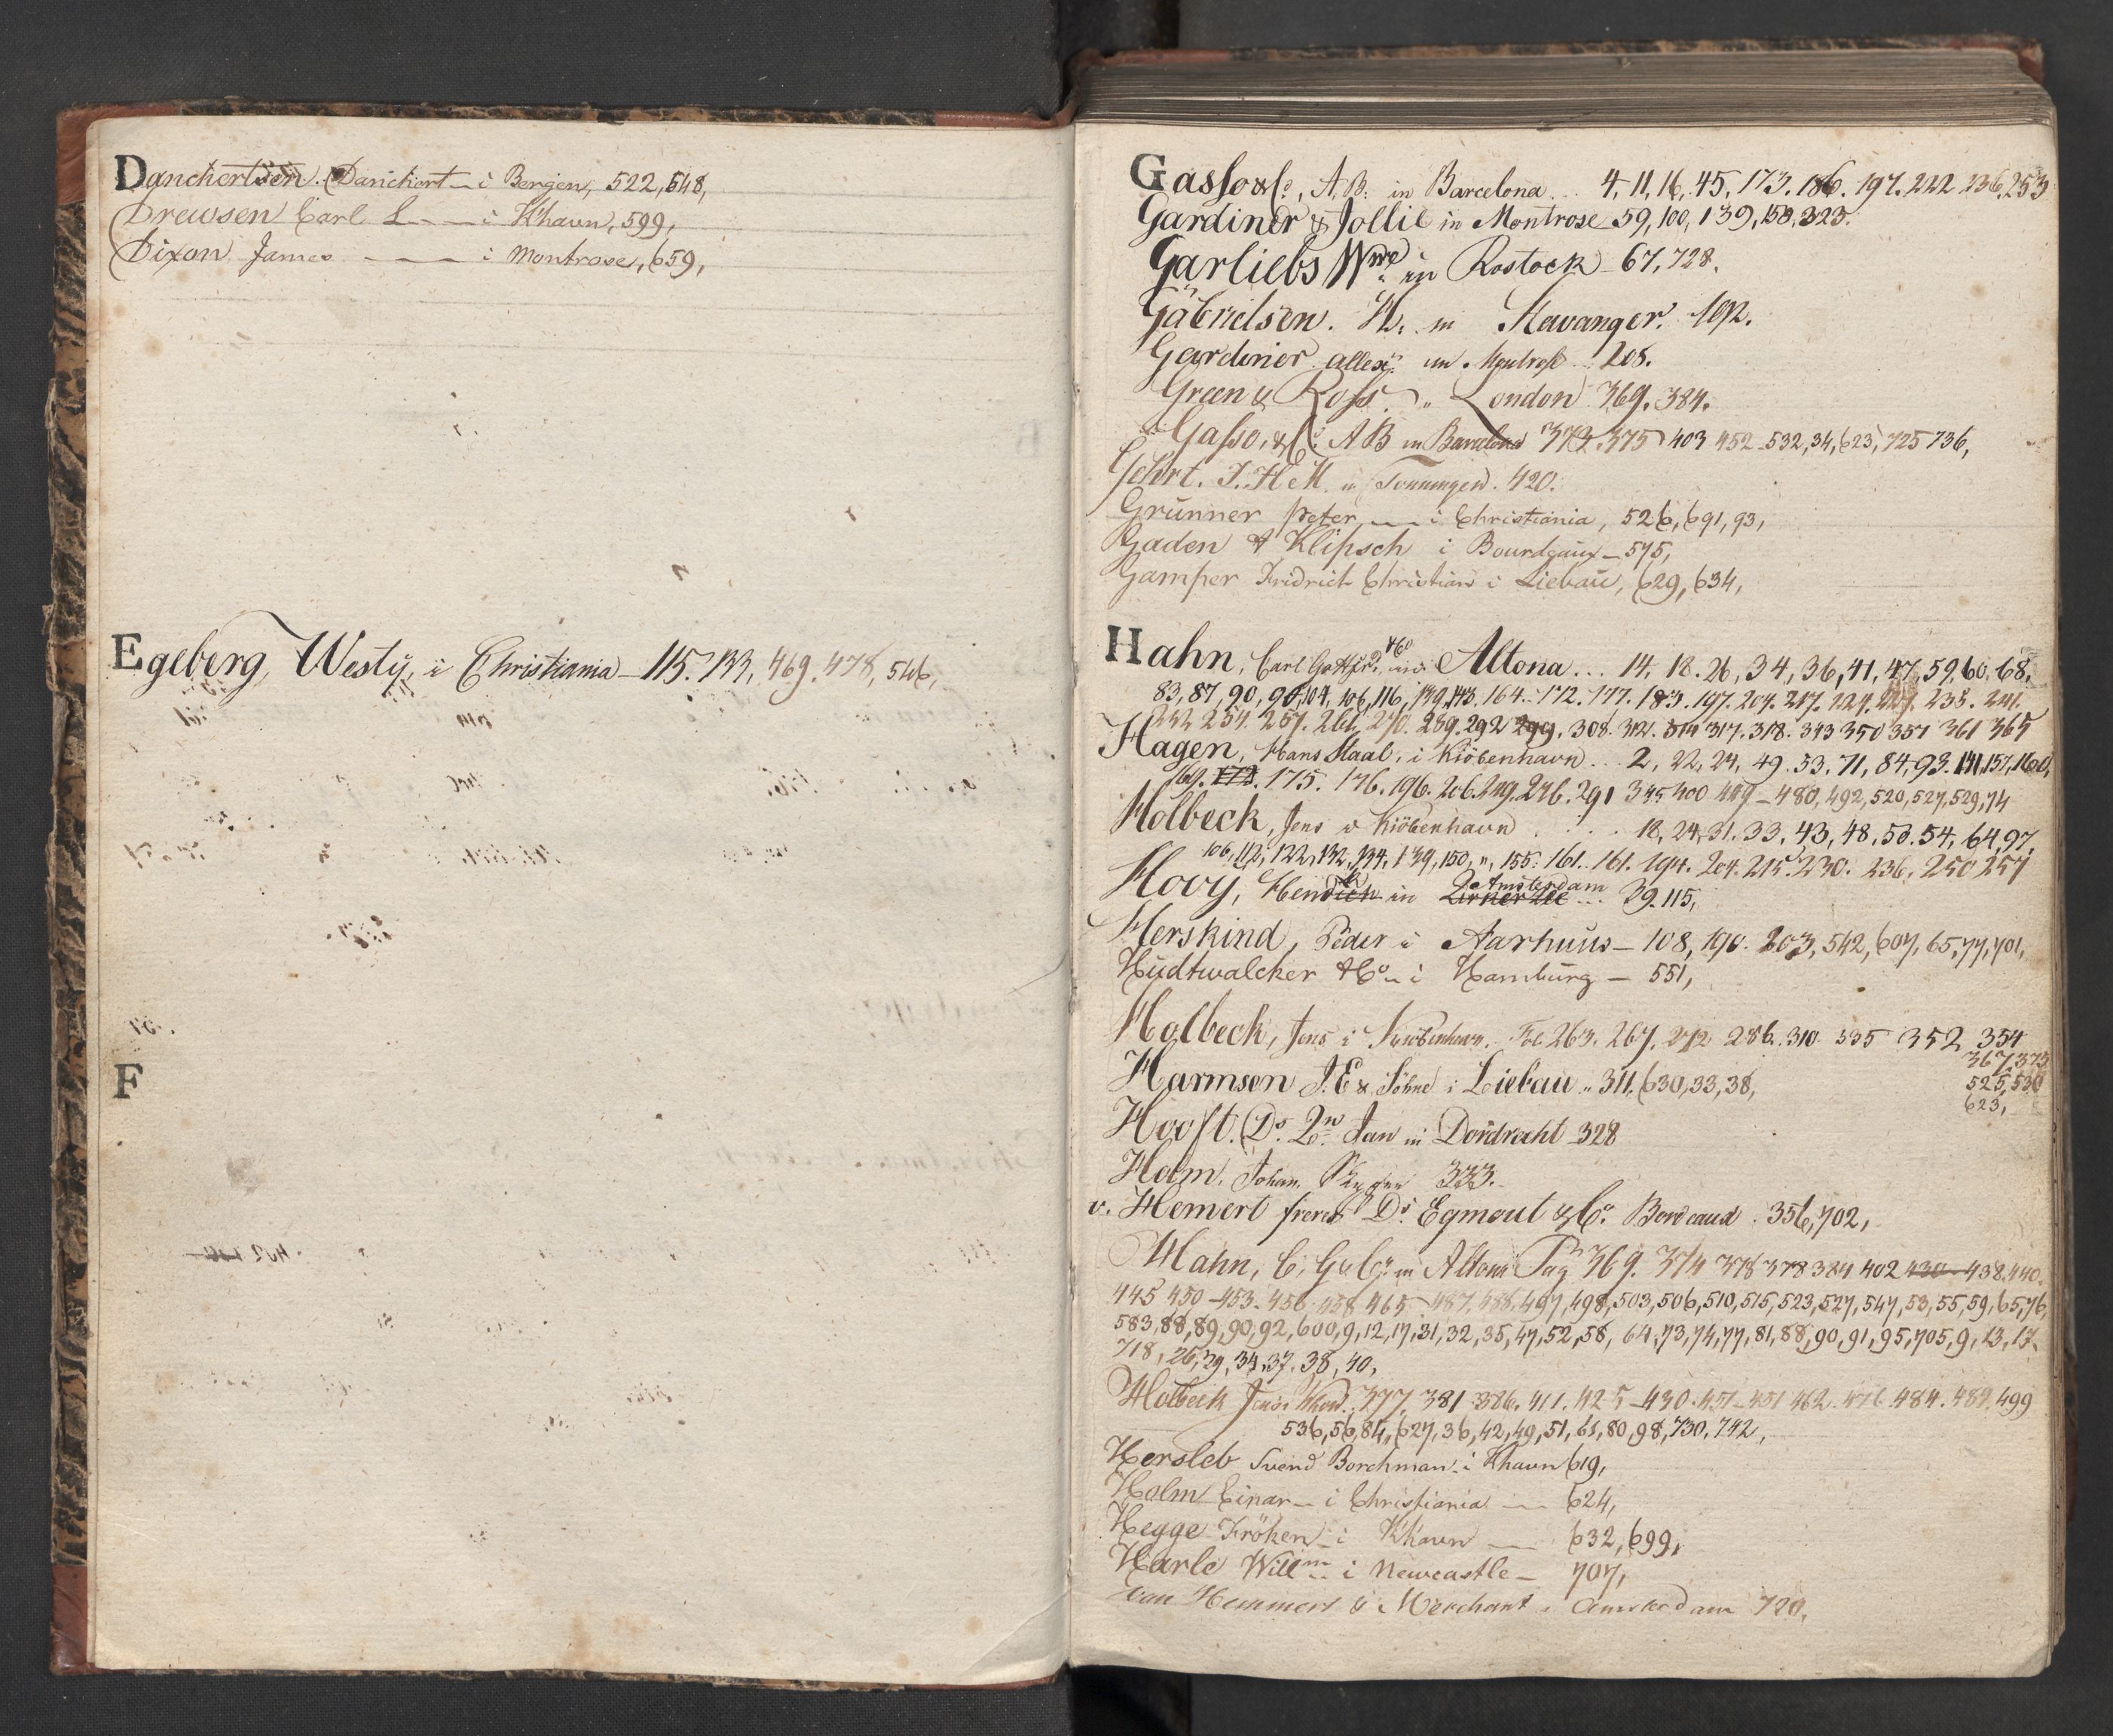 Danchertsen. Danckert — i Bergen, 522, 648,
Drewsen Carl L — — i Khavn, 599,
Dixon James — — i Montrose, 659,
Egeberg, Westÿ, i Christiania — 115. 133, 469. 478, 546,
F
Gasso & Co, A. B. in Barcelona . . 4, 11, 16, 45, 173. 186. 197. 222 236, 253
Gardiner & Jollie in Montrose 59, 100, 139, 158, 323.
Garliebs Wwe in Rostock — 67, 728.
Gabrielsen. H. in Stavanger. 192.
Gardinier allexr in Montrose . 208.
Green & Ross. " London 369. 384.
Gasso, & Co A B in Barcelona 373. 375 403 452 — 532, 34, 623, 725 736,
Gehrt. J. H & M. in Tonningen. 420.
Grünner Peter — — i Christiania, 526, 691, 93,
Gaden & Klipsch i Bourdeaux — 575,
Gamper Fridrich Christian i Liebau, 629, 634,
Hahn, Carl Gottfr. & Co in Altona . . . 14, 18. 26, 34, 36, 41, 47, 59, 60. 68,
83, 87, 90, 96, 104, 106, 116, 139, 143. 164. 172. 177. 183. 197. 204. 217. 224. 227. 235. 241.
252 254. 257. 261. 270. 289. 292 299. 308. 312. 314 317. 318. 343 350 357 361 365
Hagen, Hans Staal, i Kiöbenhavn . . . 2, 22, 24, 49. 53. 71, 84, 93. 141, 157, 160,
169. 172. 175. 176. 196. 206. 219. 246. 291 345 400 419 — 480, 492, 520, 527, 529, 74
Holbeck, Jens i Kiöbenhavn . . . . 18, 24, 31. 33, 43, 48, 50. 54, 64, 97,
106, 112, 122, 132, 134, 139, 150, ", 155. 161. 161. 194. 204. 215. 230. 236. 250 257
Hooy, Hendrich in Zirkerzee Amsterdam . . . 39. 115,
Herskind, Peder i Aarhuus — 108, 190. 203, 542, 607, 65, 77, 701,
Hüdtwalcker & Co — i Hamburg — 551,
Holbeck, Jens i Kiøbenhavn. Fol 263. 267. 272 286. 310 335 352 354
367. 373
525, 530
623,
Harmsen J. E & Söhne i Liebau " 311, 630, 33, 38,
Hooft. Ds. Zn. Jan in Dordrecht 328
Holm. Johan 333.
v. Hemert freres Ds. Egmont & Co. Bordeaux . 356, 702,
Hahn, C. G & Co. in Altona Pag 369. 374 378 378 384 402 430 — 438. 440.
445 450 — 453. 456 458 465 — 487, 488, 497, 498, 503, 506, 510, 515, 523, 527, 547, 53, 55, 59, 65, 76,
583, 88, 89, 90, 92, 600, 9, 12, 17, 31, 32, 35, 47, 52, 58, 64, 73, 74, 77, 81, 88, 90, 91, 95, 705, 9, 13, 17,
718, 26, 29, 34, 37, 38, 40,
Holbeck Jens i Khvn. 377. 381 386. 411. 425 — 430. 451 — 451 462. 476 484. 489. 499
536, 56, 84, 627, 36, 42, 49, 51, 61, 80, 98, 730, 742,
Hersleb Svend Borchman i Khavn 619,
Holm Einar — i Christiania — 624,
Hegge Fröken — i Khavn — 632, 699,
Harle Willm — i Newcastle — 707,
Van Hemmert & Merchant i Amsterdam 720,